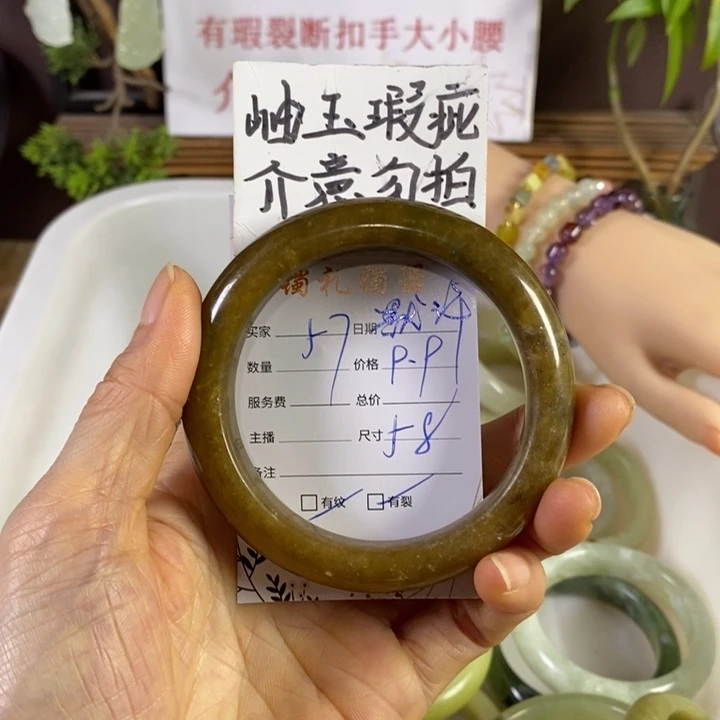 有瑕裂断扣手大小腰
介
岫玉瑕疵
介意勿拍
买家 57 日期
数量 价格 P.P
服务费 总价
主播 尺寸 58
备注
有纹 有裂